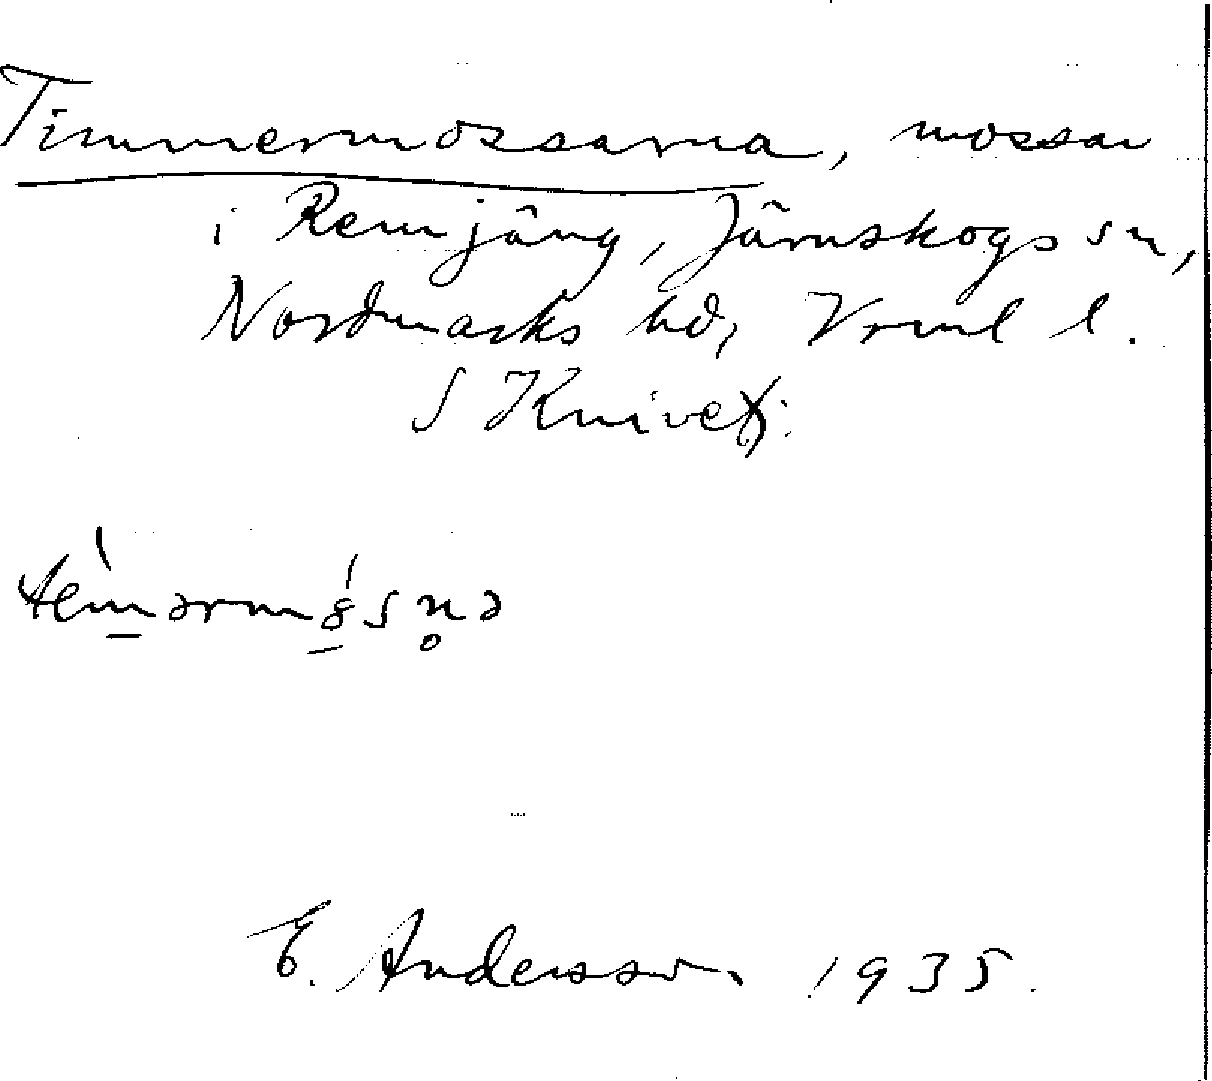 Timmermossarna, mossar
i Remjäng, Järnskogs sn,
Nordmarks hd, Vrml l.
S Knivetj.
E. Andersson 1935.